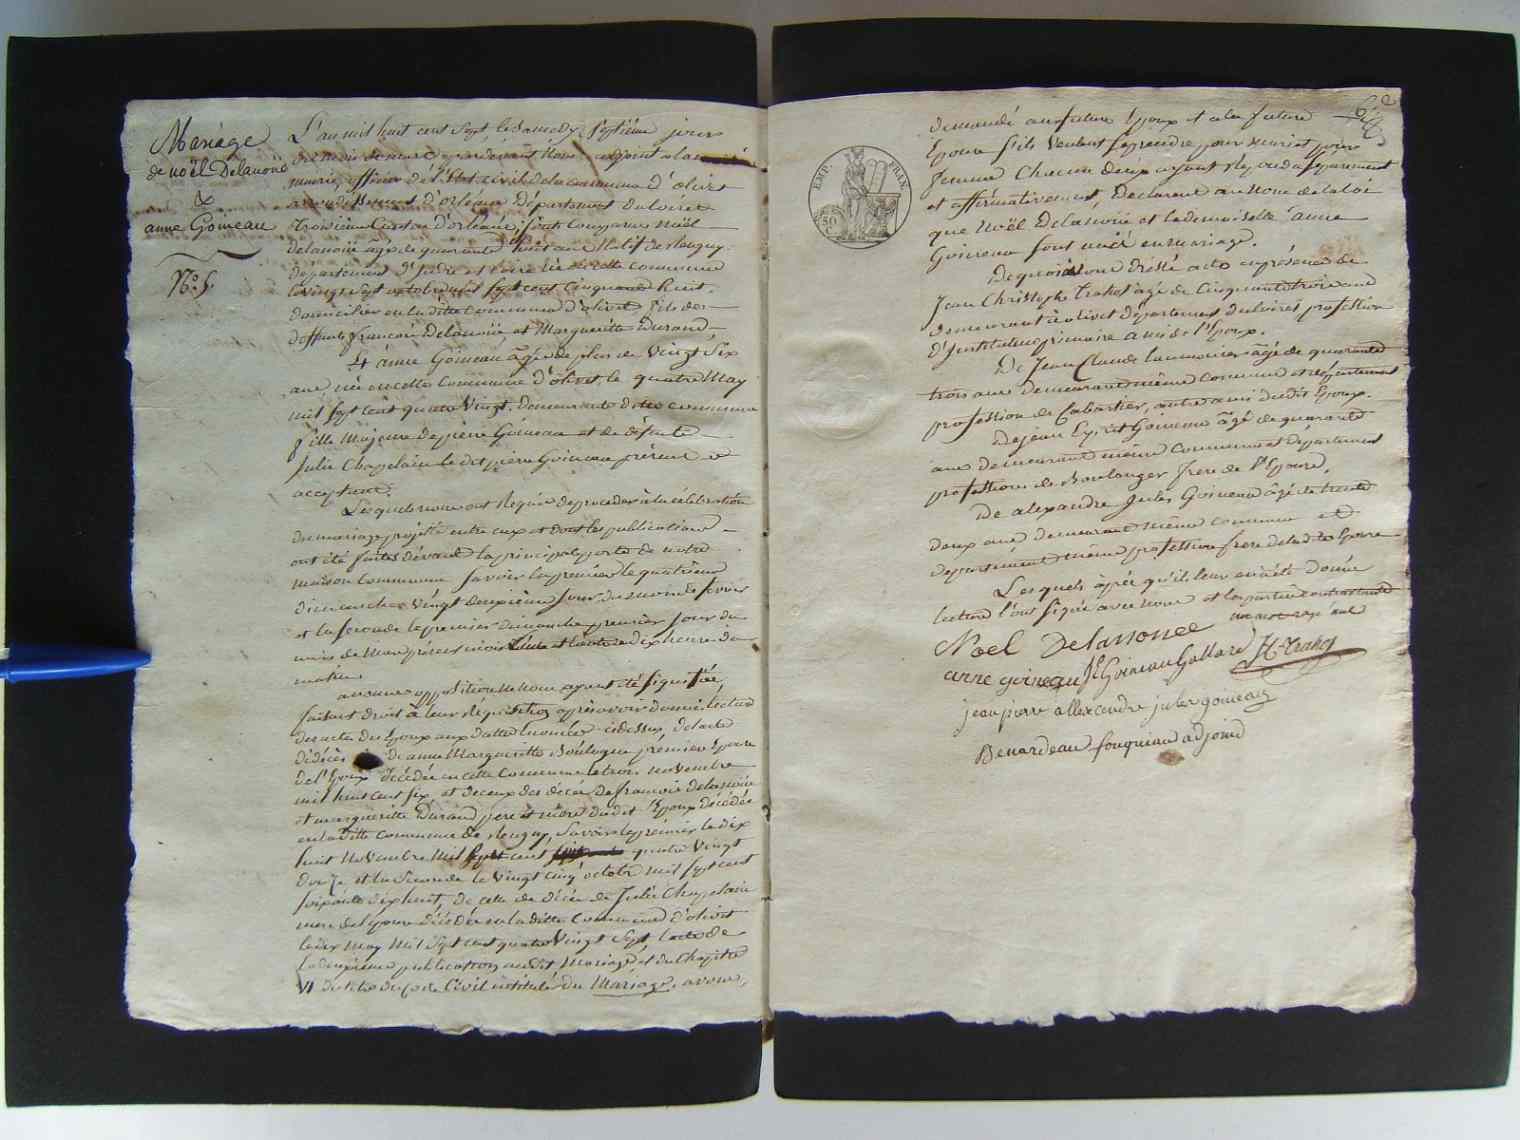 Mariage
de noël Delanoüe
&
anne Goineau
N.o 5.
L'an mil huit cent sept le samedy septième jour
du mois de mars pardevant Nous adjoint a la
mairie, officier de l'état civil de la commune d'olivet
arrondissement d'orléans Département du loiret
troisième Canton d'orléans, sont comparus noël
delanoüe âgé de quarante huit ans natif de
Département d'Indre et Loire
le vingt sept octobre mil sept cent cinquante huit.
domicilié en la ditte commune d'olivet fils de
deffunts françois Delanoüe et Marguerite Durand,
Et anne Goineau âgée de plus de vingt six
ans née en cette Commune d'olivet, le quatre May
mil sept cent quatre vingt. demeurante ditte commune
fille Majeure de pierre Goineau et de défunte
Julie Chapelain le dit pierre Goineau présent et
acceptant.
Lesquels nous ont Requis de procéder à la célébration
du mariage projetté entre eux et dont les publications
ont été faites devant la principale porte de notre
maison commune savoir la première le
dimanche vingt deuxième jour du mois de fevrier
et la seconde le premier dimanche premier jour du
mois de Mars présent mois à dix heures du
matin
aucunes oppositions ne nous ayant été signifiée,
faisant droit à leur Réquisition après avoir donné lecture
des actes des Epoux aux dattes énoncées cidessus, de l'acte
de décès de anne Marguerite Boulogne première Epouse
de l'Epoux décédée en cette Commune le trois novembre
mil huit cent six et de ceux des décès de francois delanoüe
et marguerite Durand père et mère dudit Epoux décédés
en la ditte commune de Savoir le premier le dix
huit Novembre mil sept cent quatre vingt
douze et la seconde le vingt cinq octobre mil sept cent
soixante dix huit, de celui de décès de Julie Chapelain
mere de l'epouse décédée en la ditte Commune d'olivet
le dix may mil sept cent quatre Vingt Sept, l'acte de
la deuxième publication audit Mariage et du Chapitre
VI du titre du code Civil intitulé du Mariage, avons,
EMP. FRAN.
50
C.
demandé au future Epoux et a la future
Epouse s'ils veulent se prendre pour mari et pour
femme Chacun d'eux ayant répondu séparement
et affirmativement, Declarons au Nom de la loi
que Noël Delanoüe et la demoiselle anne
Goineau sont unis en mariage.
De quoi avons dressé acte en présence de
Jean Christophe Trahot âgé de Cinquante trois ans
demeurant à olivet département du loiret profession
d'Instituteur primaire ami de l'Epoux.
De Jean Claude Lumonier âgé de quarante
trois ans demeurant même Commune et département
profession de Cabartier, autre ami dudit Epoux.
De jean Goineau âgé de quarante
ans demeurant même Commune et département
profession de Boulanger frere de l'Epouse,
De alexandre Jules Goineau âgé de trente
deux ans demeurant même commune et
departement même profession frere de ladite Epouse
Lesquels après qu'il leur en a été donné
lecture l'ont signé avec nous et les parties contractantes
Noel Delannouee
anne goineau Goineau Gallard Trahot
jean pierre allexendre jules goineau
Benardeau fouqueau adjoint